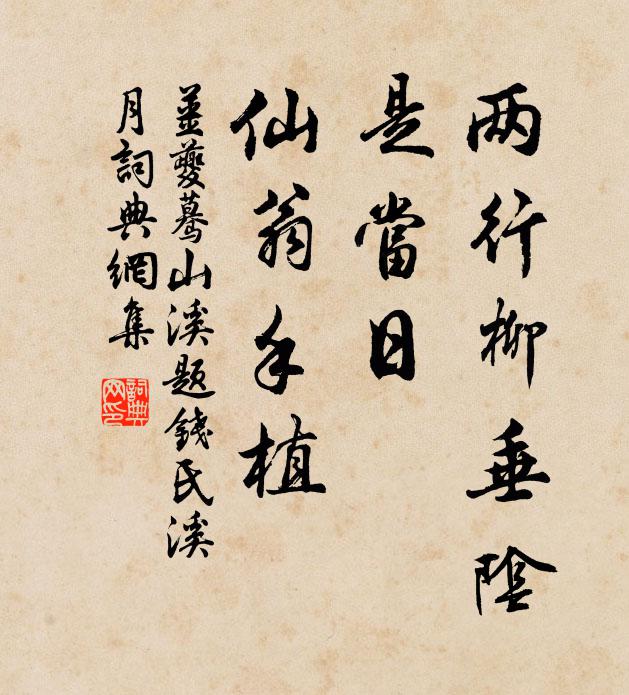 两行柳垂陰
是當日
仙翁手植
姜夔驀山溪題錢氏溪
月詞典網集
詞典
网印